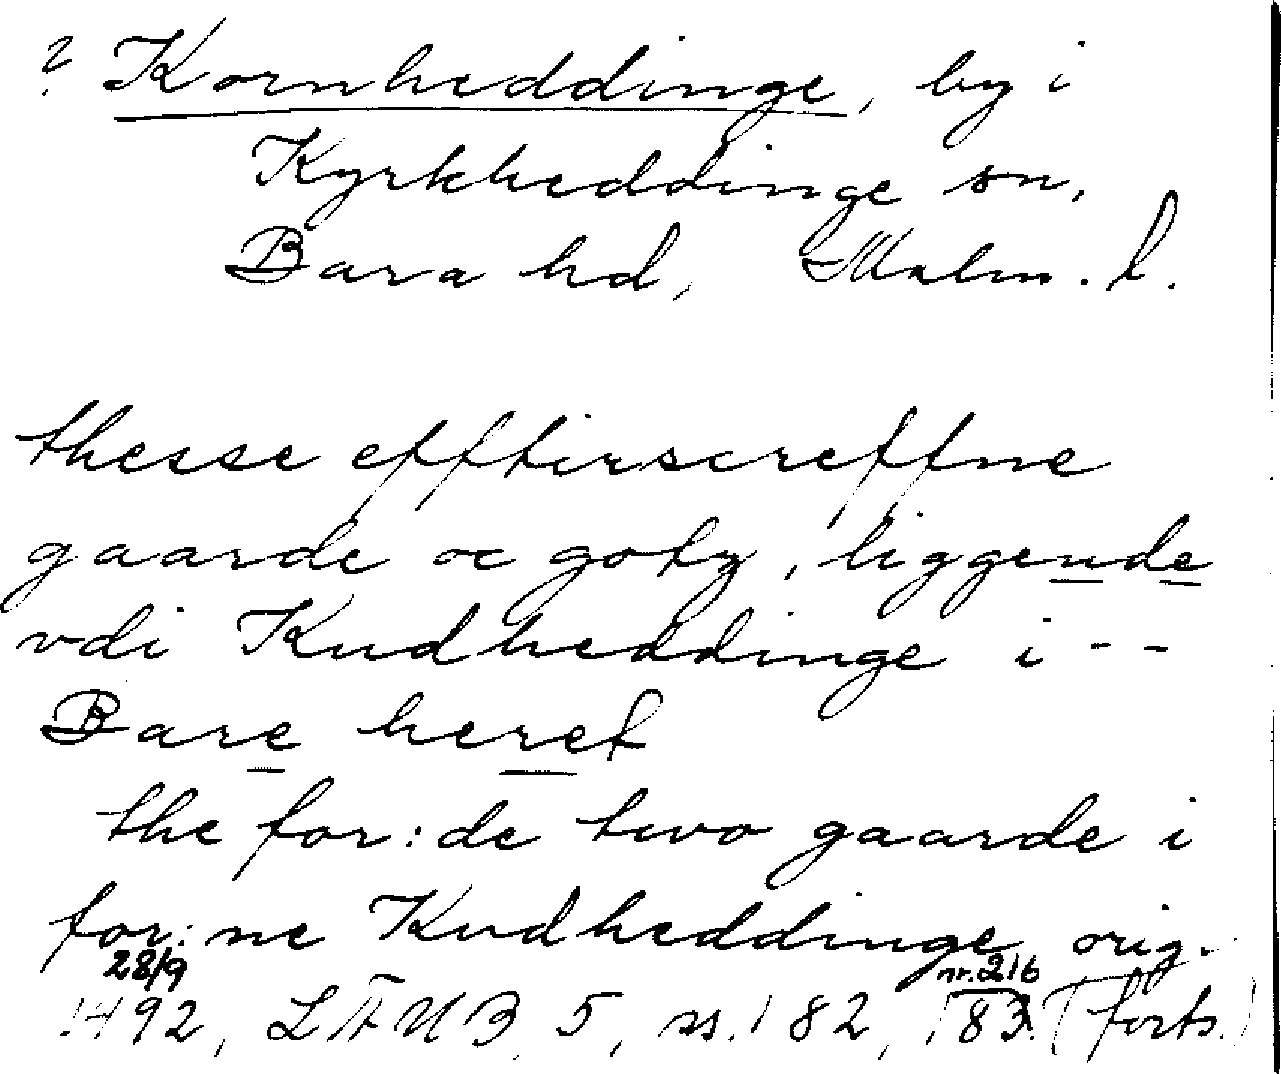 ? Kornheddinge, by i
Kyrkheddinge sn,
Bara hd, Malm. l.
thesse effterscreffne
gaarde oc gotz, liggende
vdi Kndheddinge i - -
Bare heret
the for:de two gaarde i
for:ne Kndheddinge orig.
28/9 nr. 216
1492, LÄUB 5, s. 182, 183. (forts.)